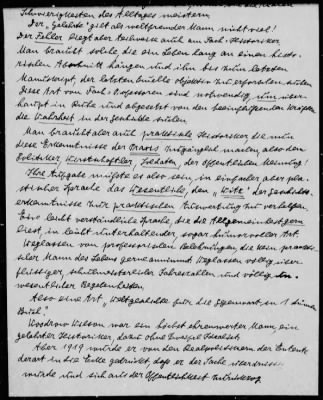 Schwierigkeiten des Alltages meistern
Der „Gelehrte" gilt als weltfremder Mann nicht viel!
Der Fehler liegt aber teilweise auch am Fach-Historiker.
Man braucht solche, die ein Leben lang an einem histo-
rischen Abschnitt hängen und ihn bis zum letzten
Manuscript der letzten Quelle objektiv zu erforschen suchen
Diese Art von Fach-Professoren sind notwendig, um über-
haupt in Ruhe und abgesetzt von den beeinflussenden Kräften
die Wahrheit in der Geschichte
Man braucht aber auch praktische Historiker die nun
diese Erkenntnisse der Praxis zugänglich machen, also den
Politiker, Wirtschaftler, Soldaten, der öffentlichen Meinung!
Ihre Aufgabe müßte es also sein, in einfacher aber pla-
stischer Sprache das Wesentliche, den der Geschichts-
erkenntnisse zur praktischen Auswertung zu verhelfen.
Eine leicht verständliche Sprache, die die Allgemeinheit gern
liest, in leicht unterhaltender, sogar humorvoller Art.
Weglassen von professoralen Belehrungen, die kein prakti-
scher Mann des Lebens gerne annimmt Weglassen völlig über-
flüssiger, schulmeisterlicher Jahreszahlen und völlig un-
wesentlicher Begebenheiten.
Also eine Art „Weltgeschichte für die Gegenwart, in 1
Woodrow Wilson war ein höchst ehrenwerter Mann, ein
gelehrter Historiker, dazu ohne Zweifel Idealist.
Aber 1919 wurde er von den Realpolitikern der Entente
derart in die Ecke gedrückt, daß er der Sache überdrüssig
wurde und sich aus der Öffentlichkeit zurückzog